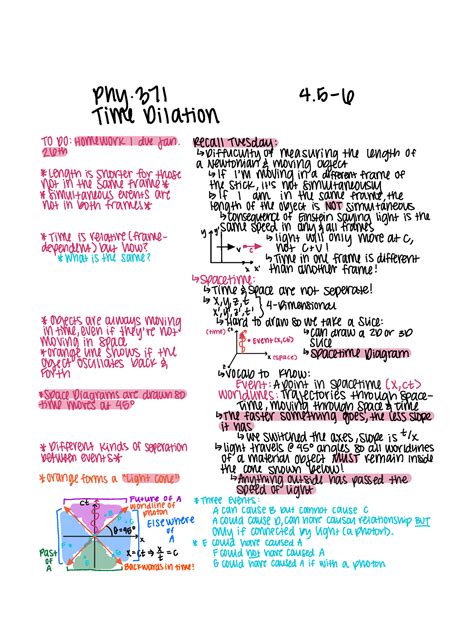 Phy. 371
4.5-6
Time Dilation
TO DO: Homework 1 due Jan.
26th
* Length is shorter for those
not in the same frame *
* Simultaneous events are
not in both frames *
* Time is Relative (frame-
dependent) but how?
* What is the same?
* Objects are always moving
in time, even if they're not
moving in space
* orange line shows if the
object oscillates back &
forth
* Space Diagrams are drawn so
time moves at 45°
* Different kinds of seperation
between events *
* orange forms a "light cone"
Recall Tuesday:
↳ Difficulty of measuring the length of
a Newtonian & moving object
↳ If I'm moving in a different frame of
the stick, it's not simultaneously
↳ If I am in the same frame, the
length of the object is NOT simultaneous
↳ consequence of Einstein saying light is the
same speed in any & all frames
↳ light will only move at c,
not c+v!
↳ Time in one frame is different
than another frame!
y y'
→ v
x x'
↳ Spacetime:
↳ Time & space are not seperate!
↳ x, y, z, t
x', y', z', t'
4-Dimensional
↳ Hard to draw so we take a slice:
(time) ct
Event (x, ct)
x (space)
↳ can draw a 2D or 3D
slice
↳ Spacetime Diagram
↳ Vocab to Know:
Event: A point in spacetime (x, ct)
Worldlines: Trajectories through space-
time, moving through space & time
↳ The faster something goes, the less slope
it has
↳ we switched the axes, slope is t/x
↳ light travels @ 45° angles so all worldlines
of a material object MUST remain inside
the cone shown below!
↳ Anything outside has passed the
speed of light
ct
Future of A
worldline of
photon
Elsewhere
of
A
θ=45°
x
x = ct → x/t = c
Past
of
A
Backwards in time!
* Three Events:
A can cause B but cannot cause C
A could cause D, can have causal relationship BUT
only if connected by light (a photon).
* E could have caused A
F could not have caused A
G could have caused A if with a photon